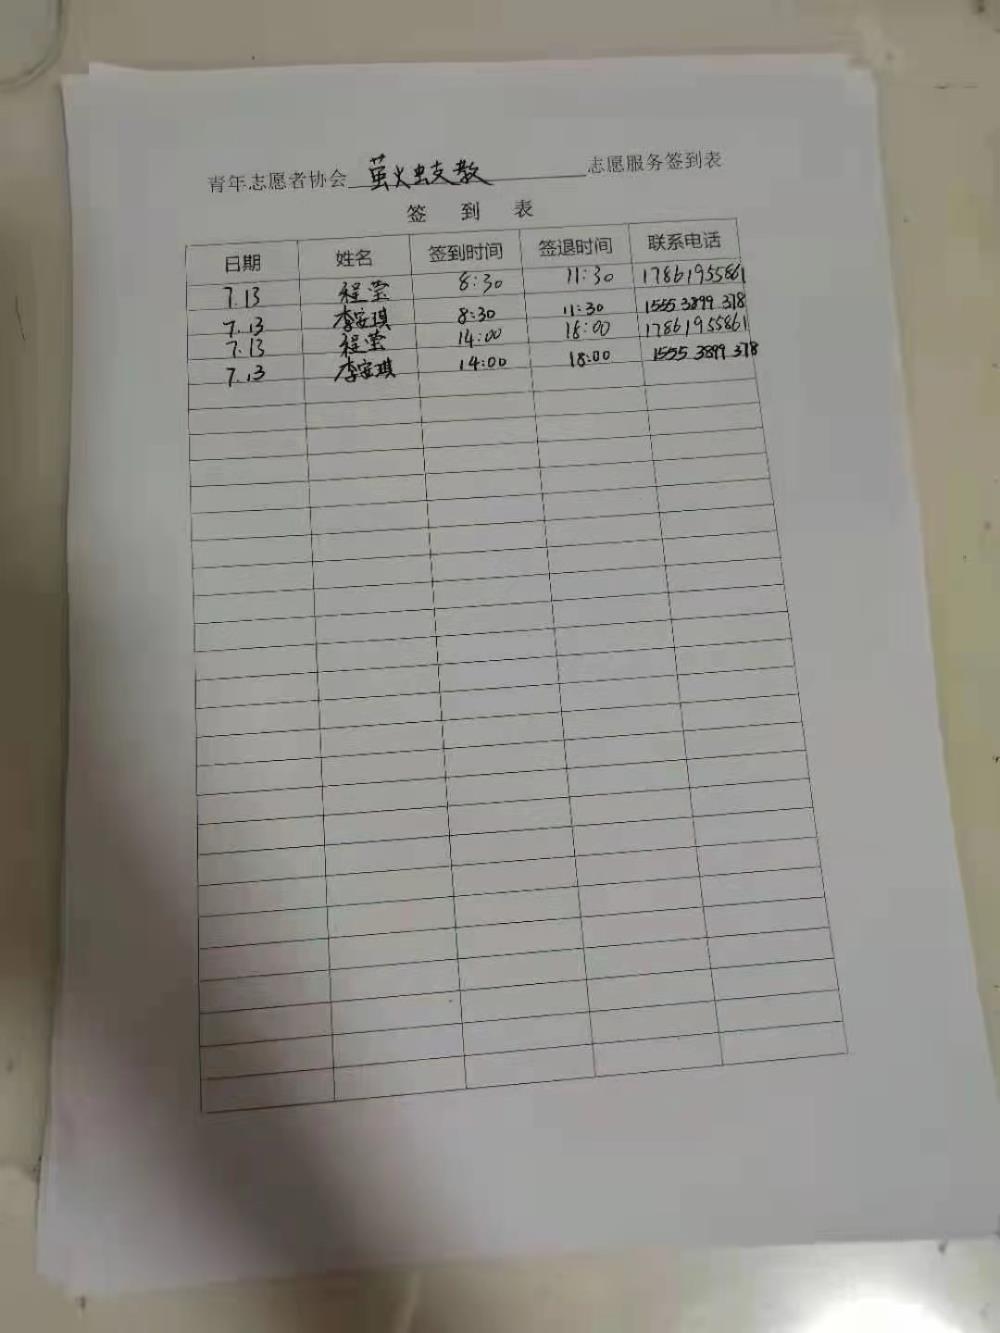 青年志愿者协会 萤火虫支教 志愿服务签到表
签 到 表
日期 姓名 签到时间 签退时间 联系电话
7.13 程莹 8:30 11:30 17861955861
7.13 李安琪 8:30 11:30 15553899378
7.13 程莹 14:00 18:00 17861955861
7.13 李安琪 14:00 18:00 15553899378